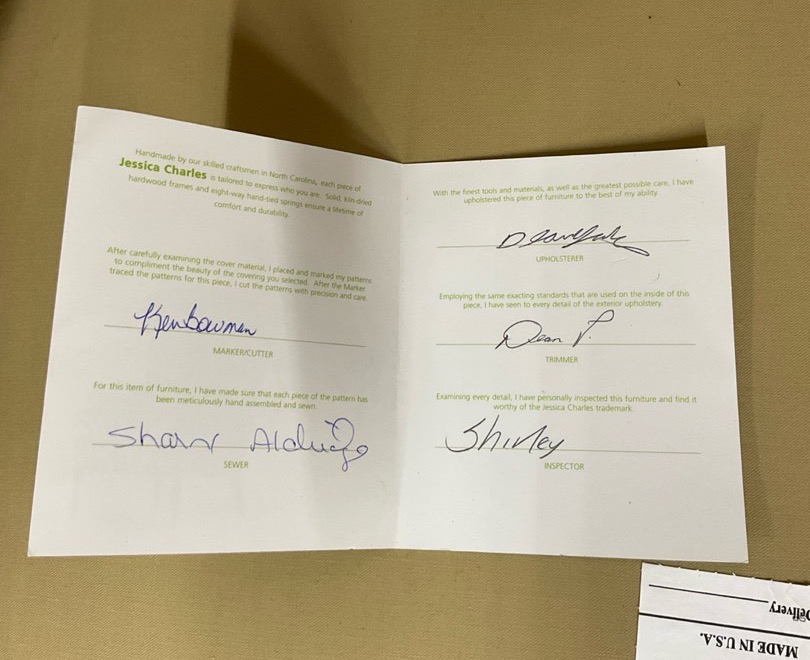 Handmade by our skilled craftsmen in North Carolina, each piece of
Jessica Charles is tailored to express who you are. Solid, kiln-dried
hardwood frames and eight-way hand-tied springs ensure a lifetime of
comfort and durability.
After carefully examining the cover material, I placed and marked my patterns
to compliment the beauty of the covering you selected. After the Marker
traced the patterns for this piece, I cut the patterns with precision and care.
Ken Bowman
MARKER/CUTTER
For this item of furniture, I have made sure that each piece of the pattern has
been meticulously hand assembled and sewn.
SEWER
With the finest tools and materials, as well as the greatest possible care, I have
upholstered this piece of furniture to the best of my ability
UPHOLSTERER
Employing the same exacting standards that are used on the inside of this
piece, I have seen to every detail of the exterior upholstery.
Dean P.
TRIMMER
Examining every detail, I have personally inspected this furniture and find it
worthy of the Jessica Charles trademark.
Shirley
INSPECTOR
Delivery
MADE IN U.S.A.